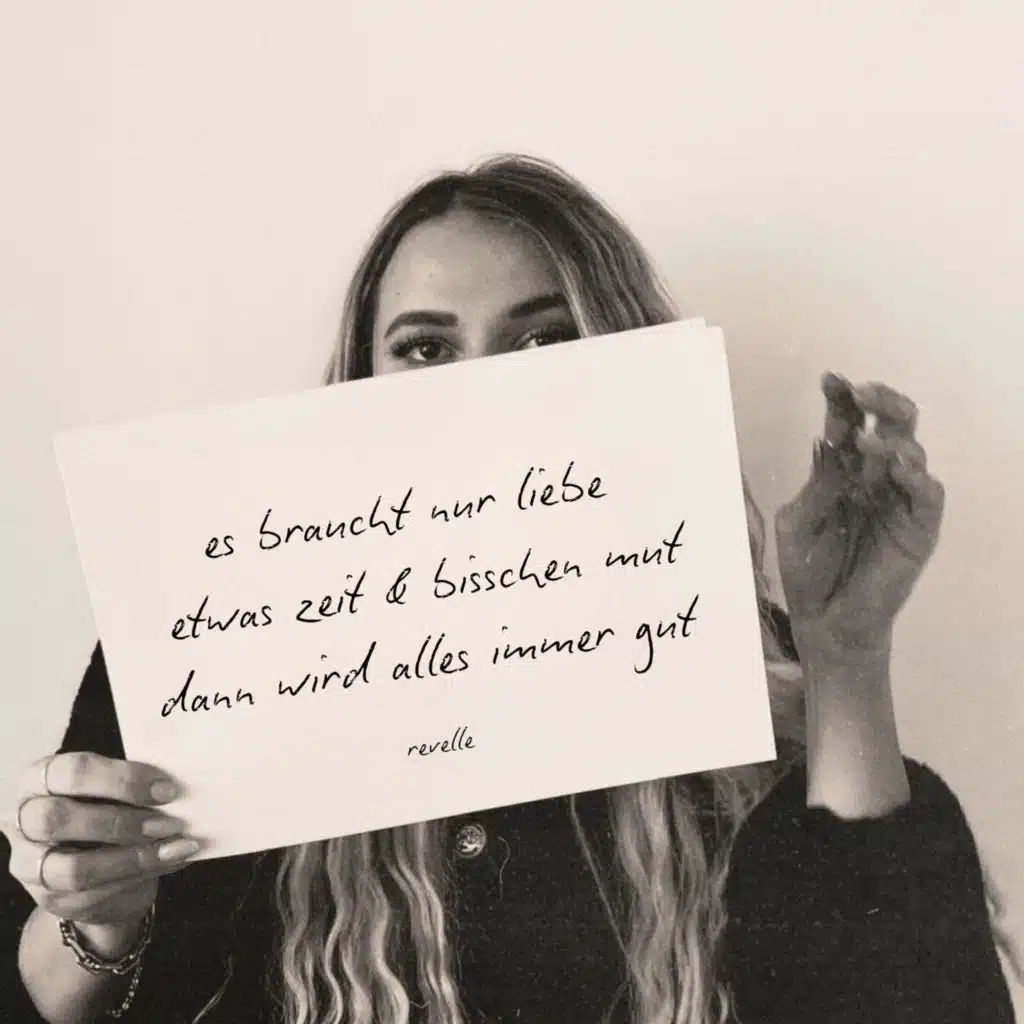 es braucht nur liebe
etwas zeit & bisschen mut
dann wird alles immer gut
revelle